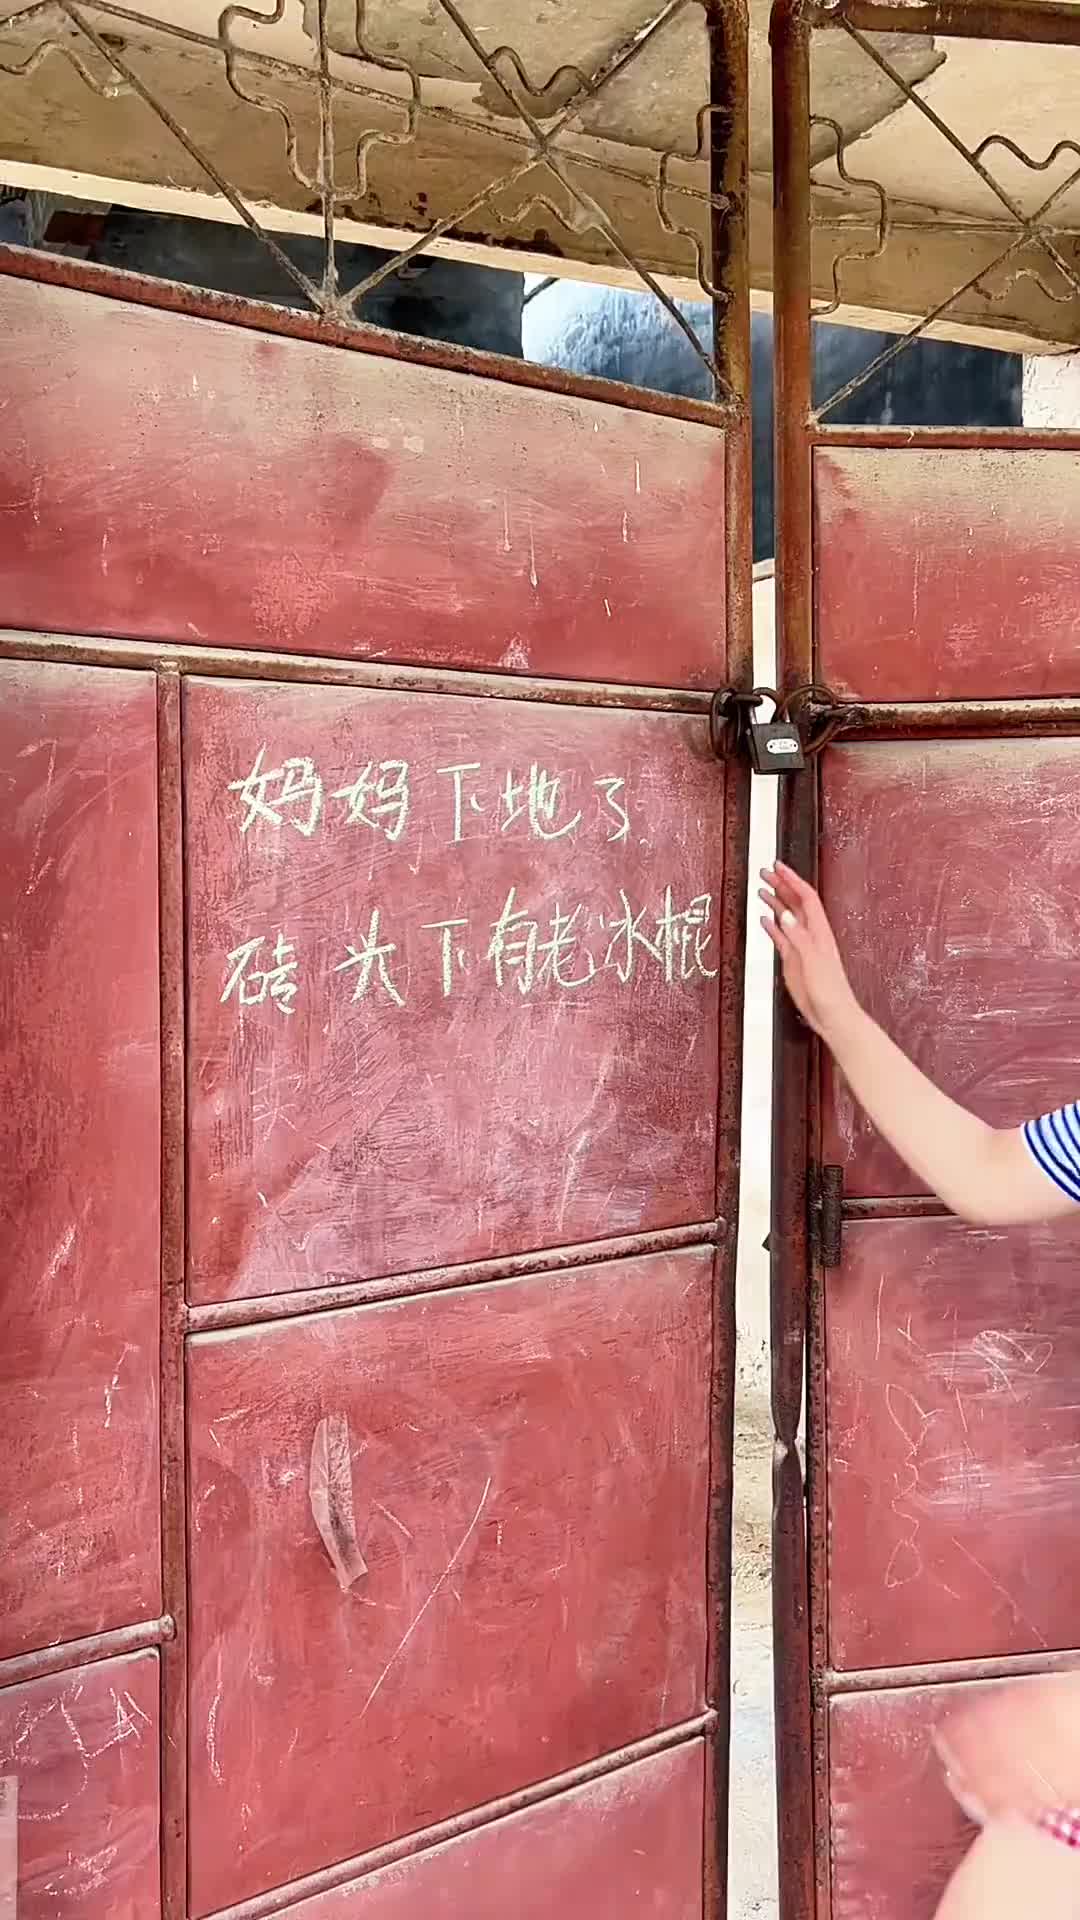 妈妈下地了
砖头下有老冰棍